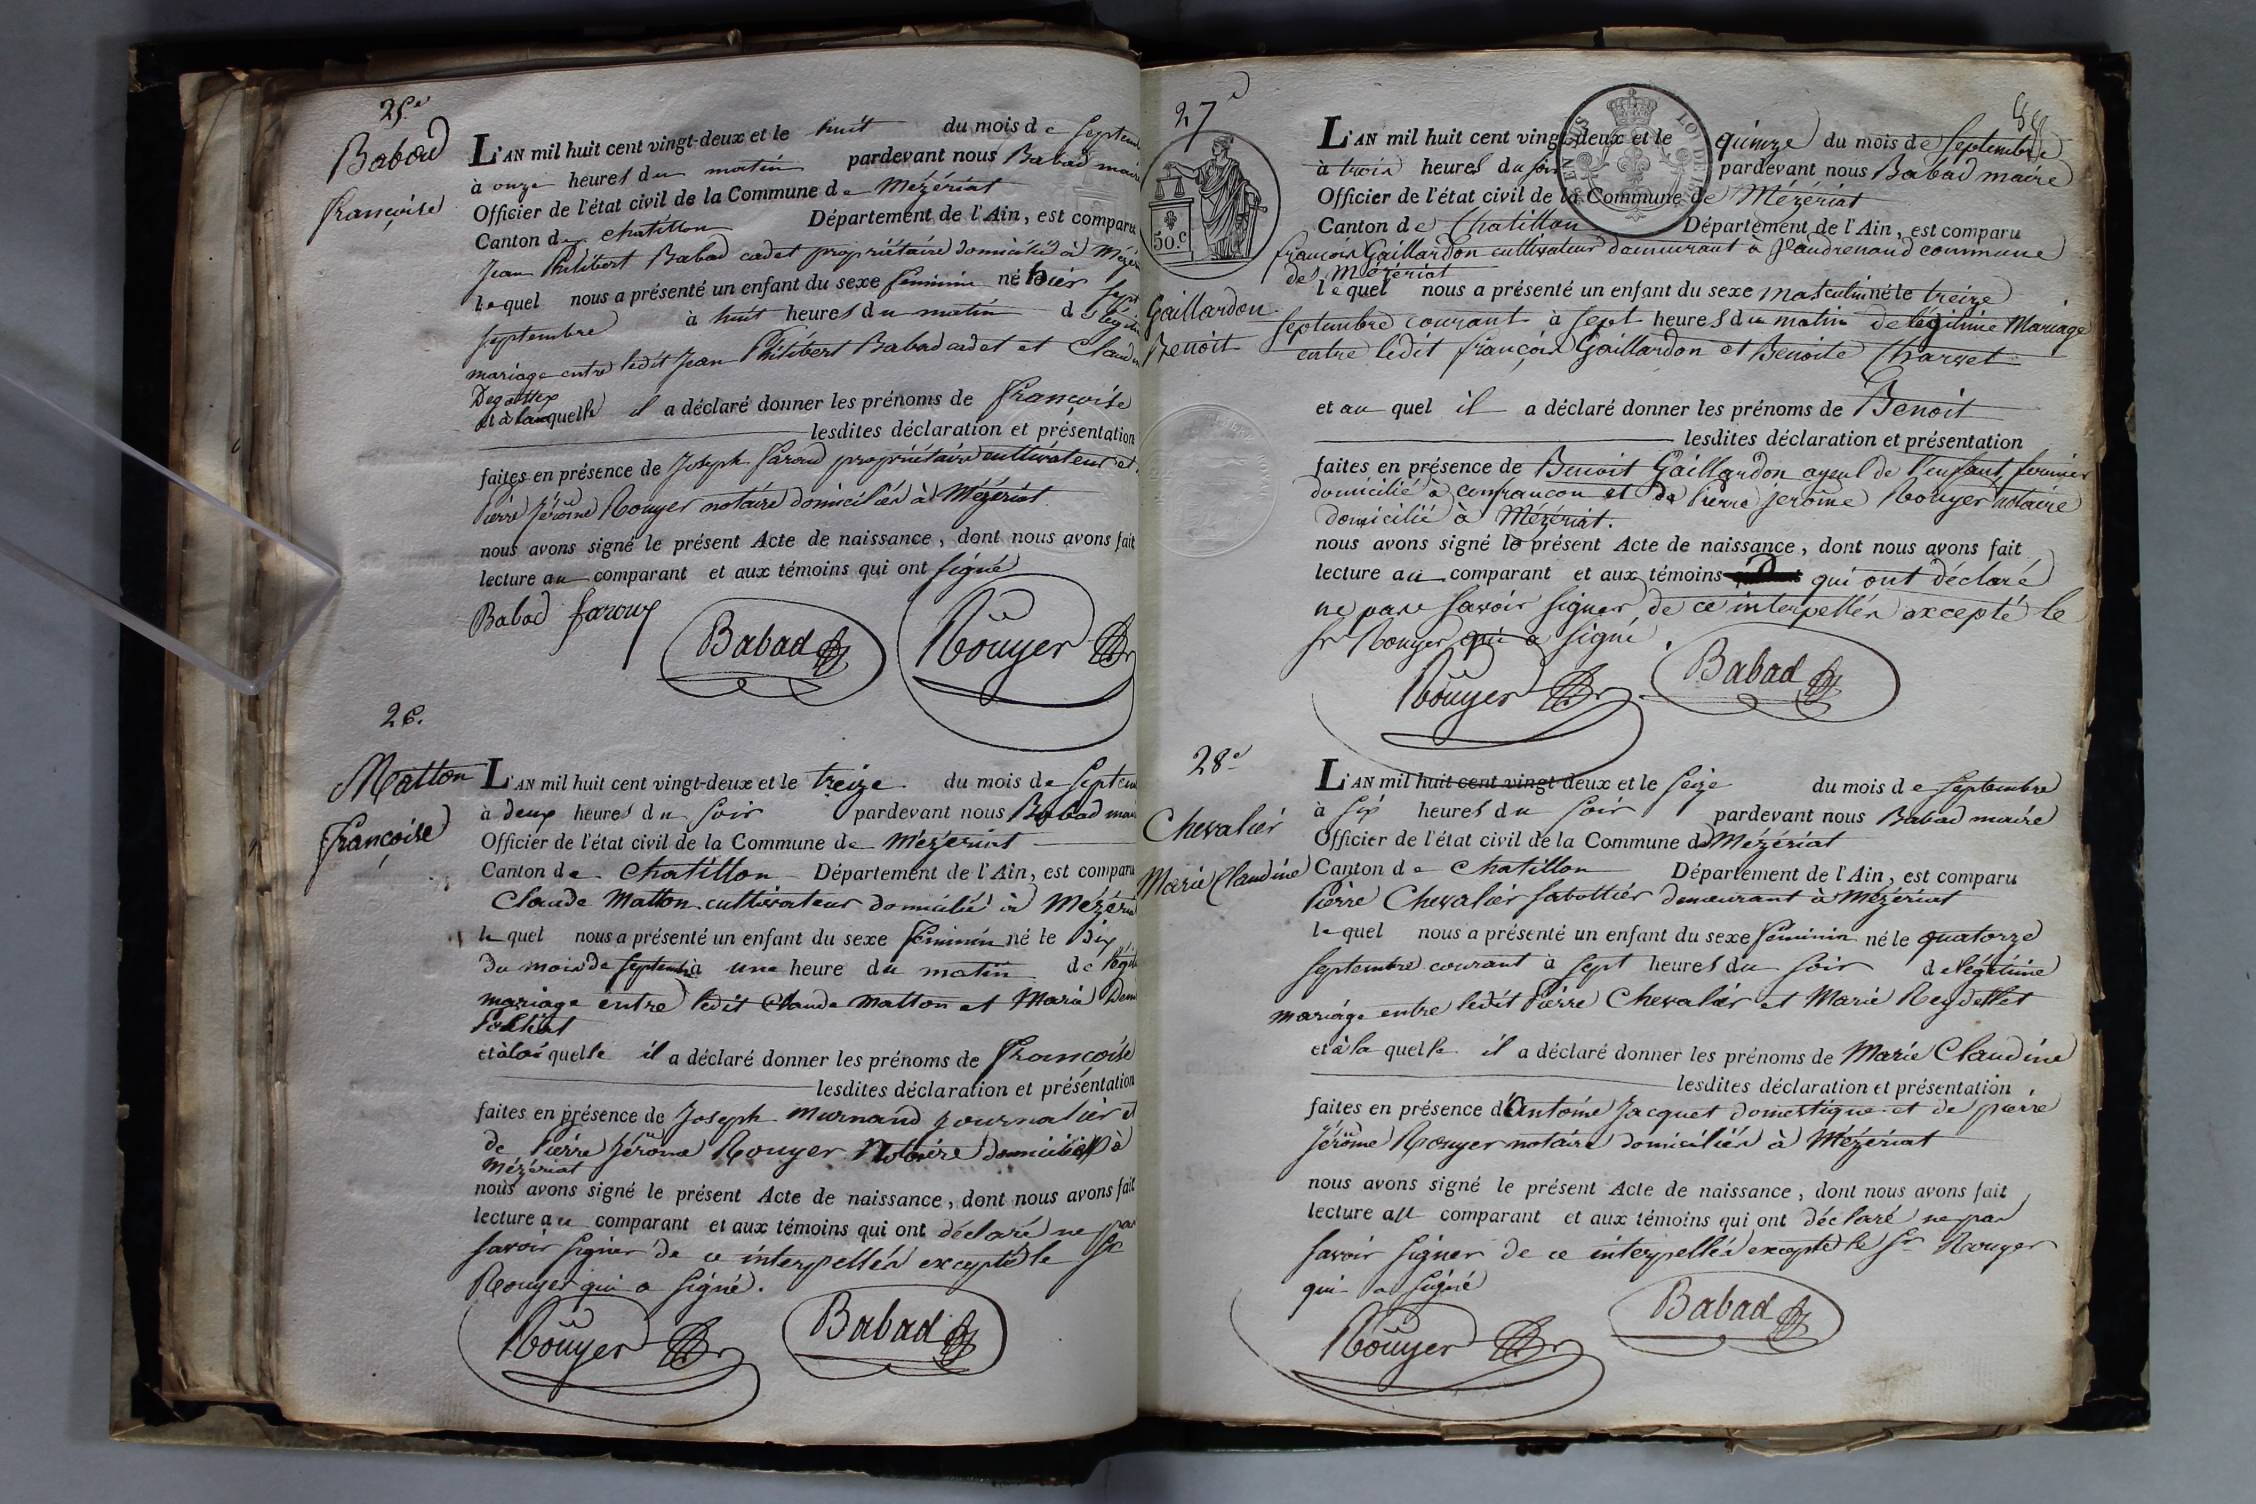 25e
Babad
françoise
L'AN mil huit cent vingt-deux et le huit du mois de Septem
à onze heures du matin pardevant nous Babad maire
Officier de l'état civil de la Commune de Mézériat
Canton de chatillon Département de l'Ain, est comparu
Jean Philibert Babad cadet propriétaire domicilié à Mézér
lequel nous a présenté un enfant du sexe féminin né hier sept
septembre à huit heures du matin de légitim
mariage entre ledit Jean Philibert Babad cadet et Claudin
Degottex
et à laquelle il a déclaré donner les prénoms de françoise
lesdites déclaration et présentation
faites en présence de Joseph faroud propriétaire cultivateur et
Pierre Jérôme Rouyer notaire domiciliés à Mézériat
nous avons signé le présent Acte de naissance, dont nous avons fait
lecture au comparant et aux témoins qui ont signé
Babad faroux
Babad Roüyer
26.
Matton
françoise
L'AN mil huit cent vingt-deux et le treize du mois de Septem
à deux heures du soir pardevant nous Babad mai
Officier de l'état civil de la Commune de Mézériat
Canton de chatillon Département de l'Ain, est comparu
Claude Matton cultivateur domicilié à Mézéria
lequel nous a présenté un enfant du sexe féminin né le Dix
du mois de septembre à une heure du matin de légit
mariage entre ledit Claude Matton et Marie Deni
et à la quelle il a déclaré donner les prénoms de françoise
lesdites déclaration et présentation
faites en présence de Joseph Murnand journalier et
de Pierre Jérôme Rouyer Notaire domiciliés à
Mézériat
nous avons signé le présent Acte de naissance, dont nous avons fait
lecture au comparant et aux témoins qui ont déclaré ne pas
savoir signer de ce interpellés excepté le Sr
Rouyer qui a signé.
Roüyer Babad
27e
50.c
Gaillardon
Benoit
L'AN mil huit cent vingt-deux et le quinze du mois de Septembre
à trois heures du soir pardevant nous Babad maire
Officier de l'état civil de la Commune de Mézériat
Canton de Chatillon Département de l'Ain, est comparu
françois Gaillardon cultivateur demeurant à Vaudrenand commune
de Mézériat
lequel nous a présenté un enfant du sexe masculin né le treize
septembre courant à sept heures du matin de légitime Mariage
entre ledit françois Gaillardon et Benoite Charvet
et au quel il a déclaré donner les prénoms de Benoit
lesdites déclaration et présentation
faites en présence de Benoit Gaillardon ayeul de l'enfant, fermier
domicilié à confrançon et de Pierre Jerome Rouyer notaire
domicilié à Mézériat.
nous avons signé le présent Acte de naissance, dont nous avons fait
lecture au comparant et aux témoins qui ont déclaré
ne pas savoir signer de ce interpellés excepté le
Sr Rouyer qui a signé.
Roüyer Babad
28e
Chevalier
Marie Claudine
L'AN mil huit cent vingt-deux et le seize du mois de Septembre
à six heures du soir pardevant nous Babad maire
Officier de l'état civil de la Commune de Mézériat
Canton de chatillon Département de l'Ain, est comparu
Pierre Chevalier sabottier demeurant à Mézériat
lequel nous a présenté un enfant du sexe féminin né le quatorze
septembre courant à sept heures du soir de légitime
mariage entre ledit Pierre Chevalier et Marie Reydellet
et à la quelle il a déclaré donner les prénoms de Marie Claudine
lesdites déclaration et présentation
faites en présence d'Antoine Jacquet domestique et de pierre
Jérôme Rouyer notaire domiciliés à Mézériat
nous avons signé le présent Acte de naissance, dont nous avons fait
lecture au comparant et aux témoins qui ont déclaré ne pas
savoir signer de ce interpellés excepté le Sr Rouyer
qui a signé
Roüyer Babad